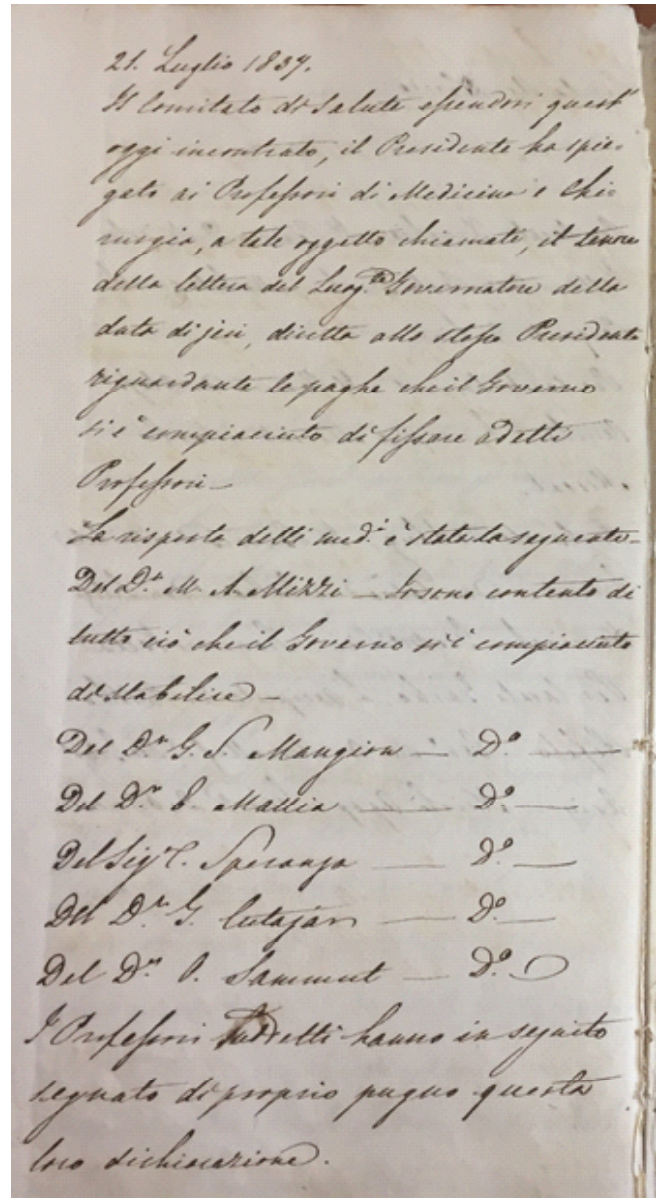 21. Luglio 1837.
Il Comitato di Salute essendosi quest'
oggi incontrato, il Presidente ha spie-
gato ai Professori di Medicina e Chi-
rurgia, a tale oggetto chiamati, il tenore
della lettera del Luog.te Governatore della
data di jeri, diretta allo stesso Presidente
riguardante le paghe che il Governo
si è compiaciuto di fissare a detti
Professori—
La risposta detti med.i è stata la seguente—
Del D.r M. A. Mizzi — Io sono contento di
tutto ciò che il Governo si è compiaciuto
di stabilire —
Del D.r G. S. Mangion — D.o —
Del D.r E. Mallia — D.o —
Del Sig.r C. Speranza — D.o —
Del D.r G. Cutajar — D.o —
Del D.r P. Sammut — D.o —
I Professori suddetti hanno in seguito
segnato di proprio pugno questa
loro dichiarazione.